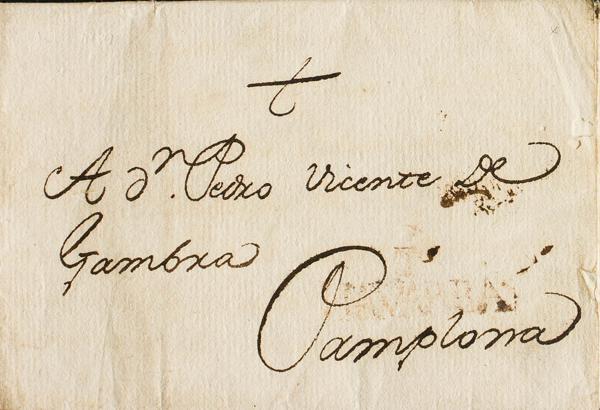 A dⁿ. Pedro Vicente De
Gambra
Pamplona